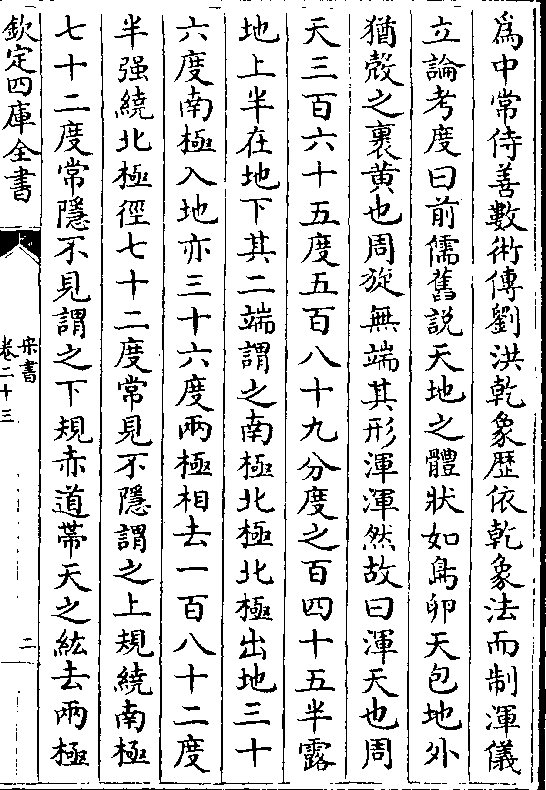 爲中常侍善數術傳劉洪乾象歴依乾象法而制渾儀
立論考度曰前儒舊説天地之體狀如鳥卵天包地外
猶殻之裹黄也周旋無端其形渾渾然故曰渾天也周
天三百六十五度五百八十九分度之百四十五半露
地上半在地下其二端謂之南極北極北極出地三十
六度南極入地亦三十六度兩極相去一百八十二度
半强繞北極徑七十二度常見不隱謂之上規繞南極
七十二度常隱不見謂之下規赤道帶天之紘去兩極
欽定四庫全書
宋書
卷二十三
二